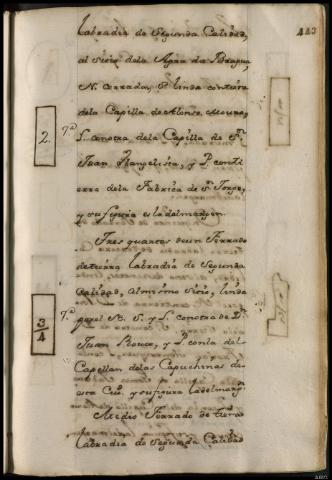 443
labradia de Segunda Calidad,
al Sitio dela Agra da
N. Cerradas, S. linda con tierra
dela Capilla de Alonso
2. 7.ª
L. con otra dela Capilla de Sn.
Juan Evangelista, y P. conti
erra dela Fabrica de Sn. Jorge,
y su figura es la del margen
Tres quartos de un Ferrado
de tierra labradia de Segunda
Calidad, al mismo Sitio, linda
3/4 7.ª
por el N. S. y L. con otra de Dn.
Juan y P. con la del
Capellan delas Capuchinas de
esta y su figura la del marg.
Medio Ferrado de tierra
labradia de Segunda Calidad